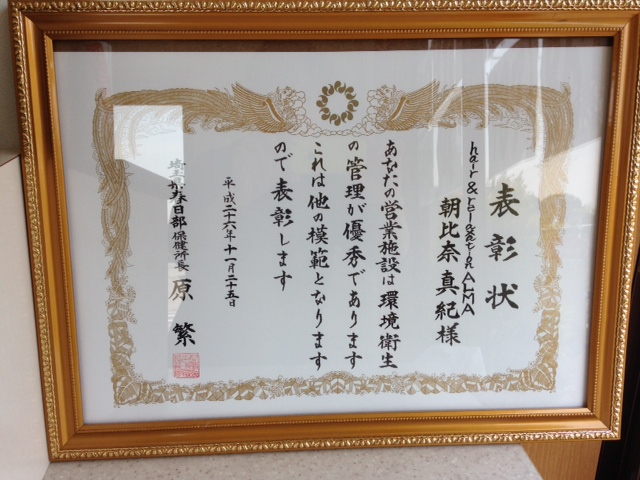 表彰状
hair & relaxation ALMA
朝比奈真紀様
あなたの営業施設は環境衛生
の管理が優秀であります
これは他の模範となります
ので表彰します
平成二十六年十一月二十五日
埼玉県春日部保健所長 原 繁